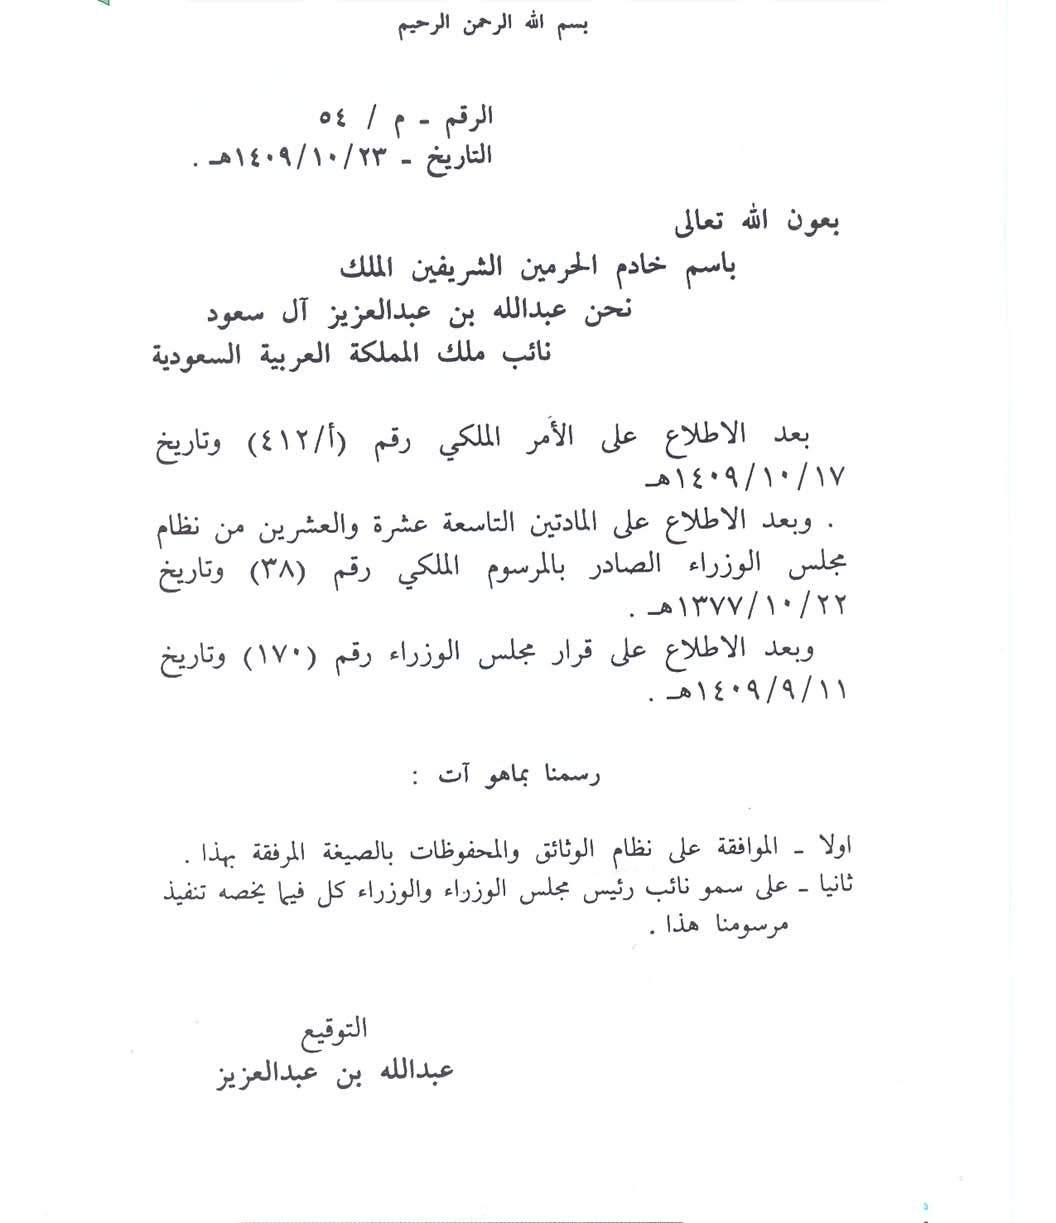 بسم الله الرحمن الرحيم
الرقم - م / ٥٤
التاريخ - ١٤٠٩/١٠/٢٣هـ .
بعون الله تعالى
باسم خادم الحرمين الشريفين الملك
نحن عبدالله بن عبدالعزيز آل سعود
نائب ملك المملكة العربية السعودية
بعد الاطلاع على الأمر الملكي رقم (أ/٤١٢) وتاريخ
١٤٠٩/١٠/١٧هـ
. وبعد الاطلاع على المادتين التاسعة عشرة والعشرين من نظام
مجلس الوزراء الصادر بالمرسوم الملكي رقم (٣٨) وتاريخ
١٣٧٧/١٠/٢٢هـ .
وبعد الاطلاع على قرار مجلس الوزراء رقم (١٧٠) وتاريخ
١٤٠٩/٩/١١هـ .
رسمنا بماهو آت :
اولا - الموافقة على نظام الوثائق والمحفوظات بالصيغة المرفقة بهذا .
ثانيا - على سمو نائب رئيس مجلس الوزراء والوزراء كل فيما يخصه تنفيذ
مرسومنا هذا .
التوقيع
عبدالله بن عبدالعزيز